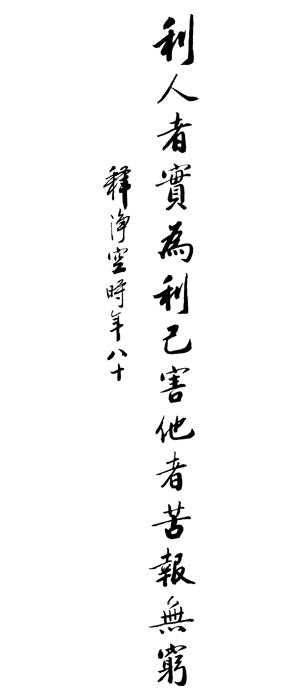 利人者實為利己害他者苦報無窮
釋淨空時年八十